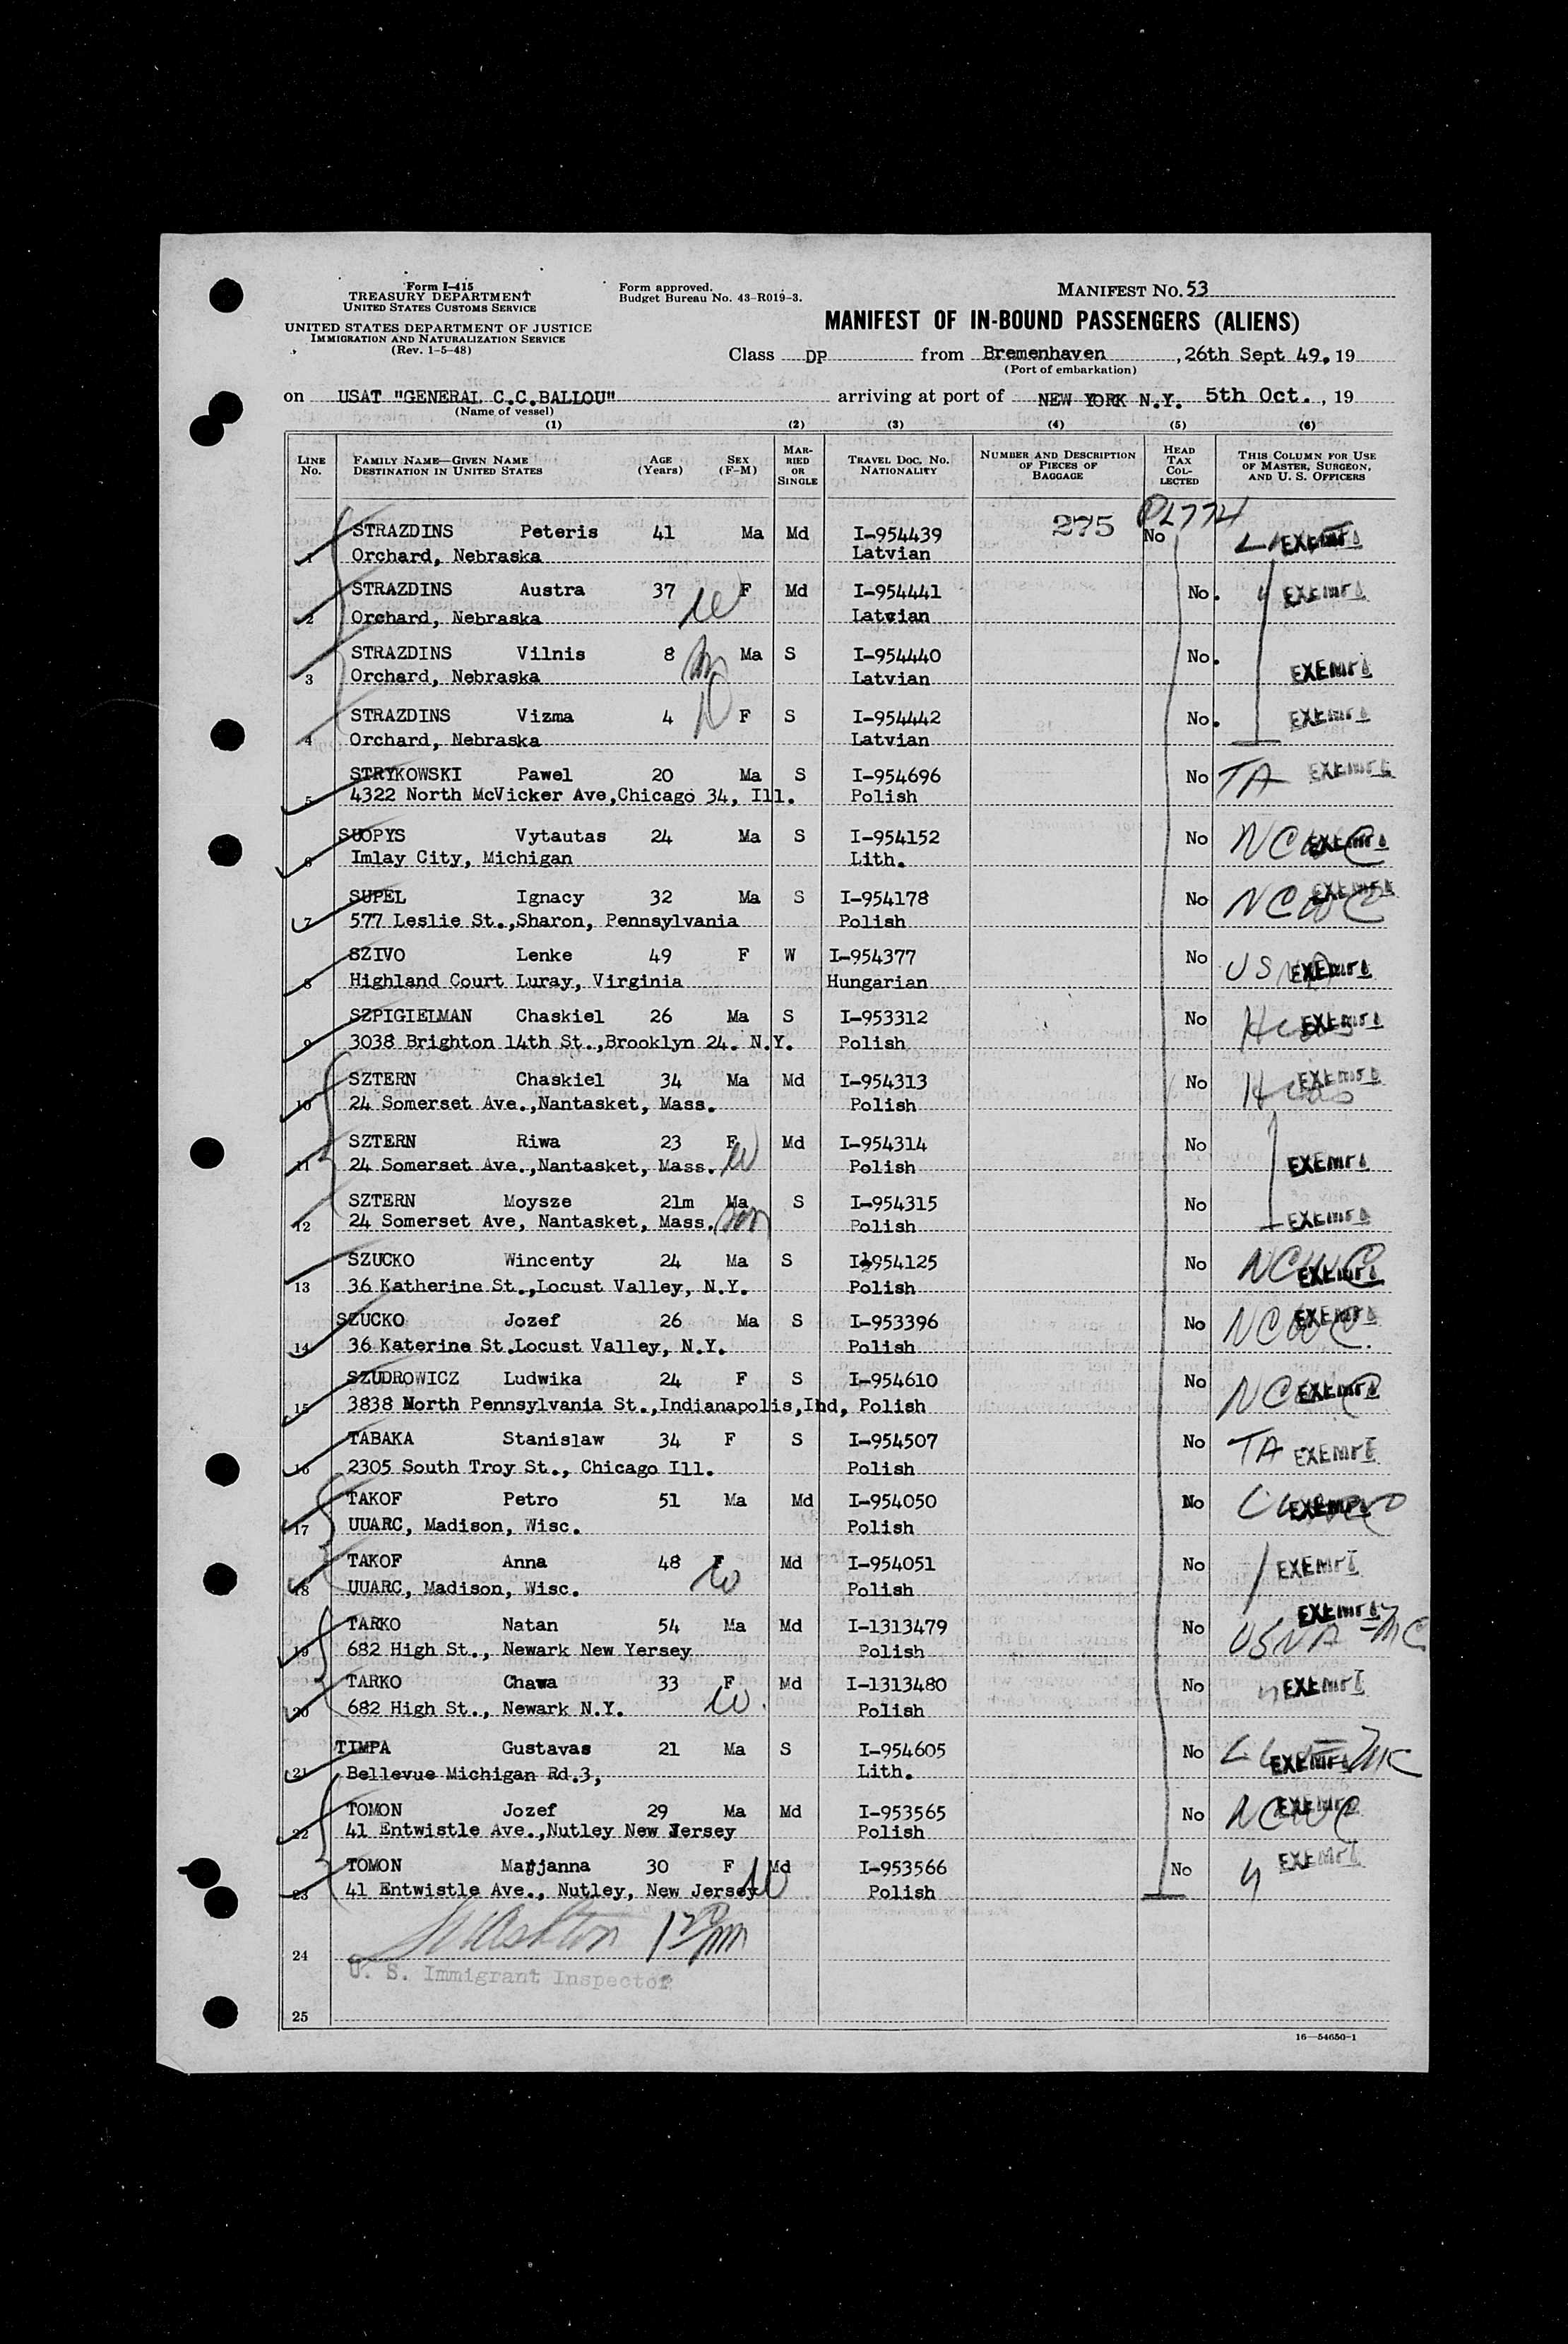 Form I-415
TREASURY DEPARTMENT
UNITED STATES CUSTOMS SERVICE
UNITED STATES DEPARTMENT OF JUSTICE
IMMIGRATION AND NATURALIZATION SERVICE
(Rev. 1-5-48)
Form approved.
Budget Bureau No. 43-R019-3.
MANIFEST NO. 53
MANIFEST OF IN-BOUND PASSENGERS (ALIENS)
Class DP from Bremenhaven, 26th Sept 49, 19
(Port of embarkation)
on USAT "GENERAL C.C.BALLOU" arriving at port of NEW YORK N.Y. 5th Oct., 19
(Name of vessel)
(1) (2) (3) (4) (5) (6)
LINE No. FAMILY NAME—GIVEN NAME DESTINATION IN UNITED STATES AGE (Years) SEX (F-M) MARRIED OR SINGLE TRAVEL DOC. NO. NATIONALITY NUMBER AND DESCRIPTION OF PIECES OF BAGGAGE HEAD TAX COLLECTED THIS COLUMN FOR USE OF MASTER, SURGEON, AND U. S. OFFICERS
275
STRAZDINS Peteris 41 Ma Md I-954439 No EXEMPT
1 Orchard, Nebraska Latvian
STRAZDINS Austra 37 F Md I-954441 No. EXEMPT
2 Orchard, Nebraska Latvian
STRAZDINS Vilnis 8 Ma S I-954440 No. EXEMPT
3 Orchard, Nebraska Latvian
STRAZDINS Vizma 4 F S I-954442 No. EXEMPT
4 Orchard, Nebraska Latvian
STRYKOWSKI Pawel 20 Ma S I-954696 No TA EXEMPT
5 4322 North McVicker Ave,Chicago 34, Ill. Polish
SUOPYS Vytautas 24 Ma S I-954152 No NCWC EXEMPT
6 Imlay City, Michigan Lith.
SUPEL Ignacy 32 Ma S I-954178 No NCWC EXEMPT
7 577 Leslie St.,Sharon, Pennsylvania Polish
SZIVO Lenke 49 F W I-954377 No USNA EXEMPT
8 Highland Court Luray, Virginia Hungarian
SZPIGIELMAN Chaskiel 26 Ma S I-953312 No EXEMPT
9 3038 Brighton 14th St.,Brooklyn 24. N.Y. Polish
SZTERN Chaskiel 34 Ma Md I-954313 No EXEMPT
10 24 Somerset Ave.,Nantasket, Mass. Polish
SZTERN Riwa 23 F Md I-954314 No EXEMPT
11 24 Somerset Ave.,Nantasket, Mass. Polish
SZTERN Moysze 21m Ma S I-954315 No EXEMPT
12 24 Somerset Ave, Nantasket, Mass. Polish
SZUCKO Wincenty 24 Ma S I-954125 No NCWC EXEMPT
13 36 Katherine St.,Locust Valley, N.Y. Polish
SZUCKO Jozef 26 Ma S I-953396 No NCWC EXEMPT
14 36 Katerine St.Locust Valley, N.Y. Polish
SZUDROWICZ Ludwika 24 F S I-954610 No NCWC EXEMPT
15 3838 North Pennsylvania St.,Indianapolis,Ind, Polish
TABAKA Stanislaw 34 F S I-954507 No TA EXEMPT
16 2305 South Troy St., Chicago Ill. Polish
TAKOF Petro 51 Ma Md I-954050 No EXEMPT
17 UUARC, Madison, Wisc. Polish
TAKOF Anna 48 F Md I-954051 No EXEMPT
18 UUARC, Madison, Wisc. Polish
TARKO Natan 54 Ma Md I-1313479 No USNA EXEMPT
19 682 High St., Newark New Yersey Polish
TARKO Chawa 33 F Md I-1313480 No EXEMPT
20 682 High St., Newark N.Y. Polish
TIMPA Gustavas 21 Ma S I-954605 No EXEMPT
21 Bellevue Michigan Rd.3, Lith.
TOMON Jozef 29 Ma Md I-953565 No NCWC EXEMPT
22 41 Entwistle Ave.,Nutley New Jersey Polish
TOMON Marjanna 30 F Md I-953566 No EXEMPT
23 41 Entwistle Ave., Nutley, New Jersey Polish
24
U. S. Immigrant Inspector
25
16—54650-1